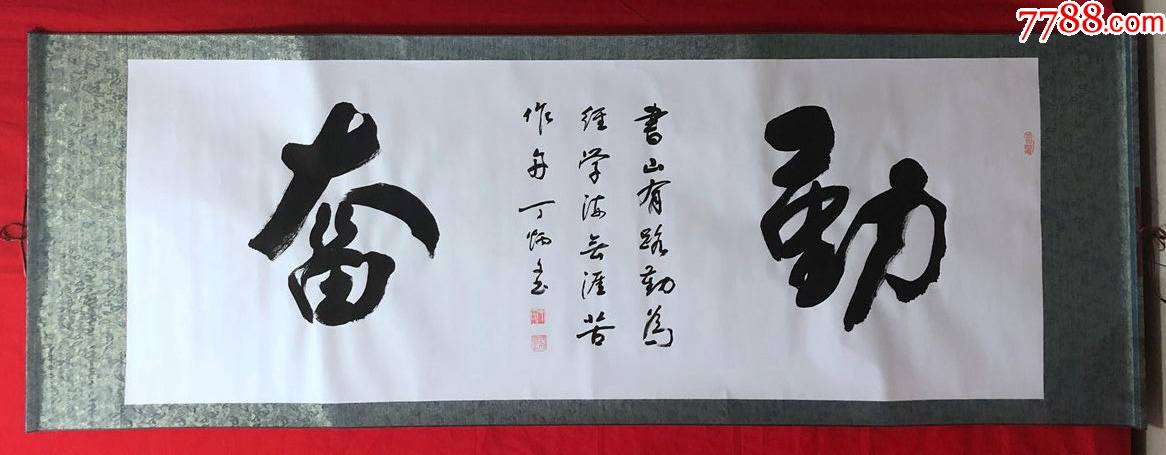 7788.com
勤
書山有路勤為
径学海无涯苦
作舟 丁炳
奋